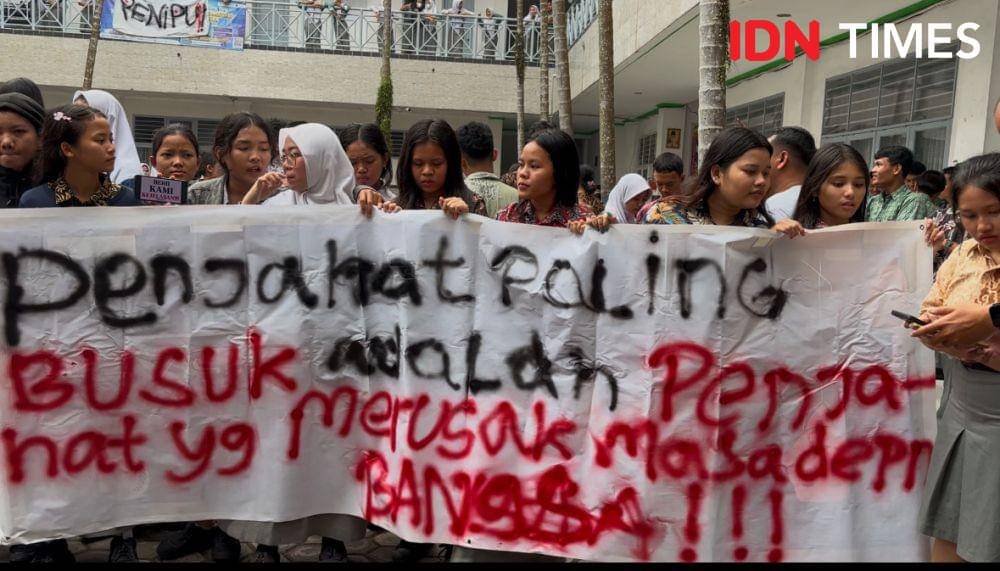 PENIPU!
IDN TIMES
BERI
KAMI
KEJELASAN
Penjahat PALiNG
BUSUK adaLah Penja-
hat yg merusak masa depn
BANGSA !!!